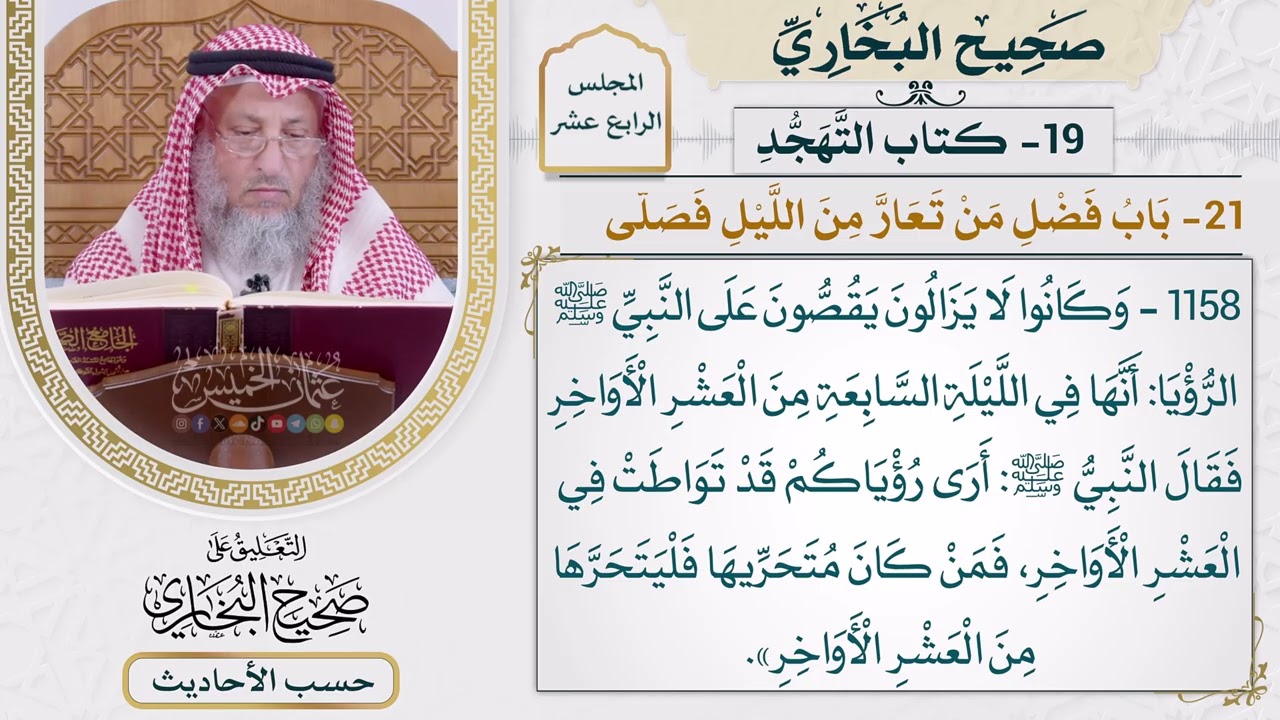 صَحِيح البُخَارِيِّ
المجلس
الرابع عشر
19- كتاب التَّهَجُّدِ
21- بَابُ فَضْلِ مَنْ تَعَارَّ مِنَ اللَّيْلِ فَصَلَّى
1158 - وَكَانُوا لَا يَزَالُونَ يَقُصُّونَ عَلَى النَّبِيِّ ﷺ
الرُّؤْيَا: أَنَّهَا فِي اللَّيْلَةِ السَّابِعَةِ مِنَ الْعَشْرِ الْأَوَاخِرِ
فَقَالَ النَّبِيُّ ﷺ: أَرَى رُؤْيَاكُمْ قَدْ تَوَاطَتْ فِي
الْعَشْرِ الْأَوَاخِرِ، فَمَنْ كَانَ مُتَحَرِّيهَا فَلْيَتَحَرَّهَا
مِنَ الْعَشْرِ الْأَوَاخِرِ».
الجامع
عُثمان الخميس
التَّعْلِيقُ عَلَى
صَحِيحُ البُخَارِي
حسب الأحاديث